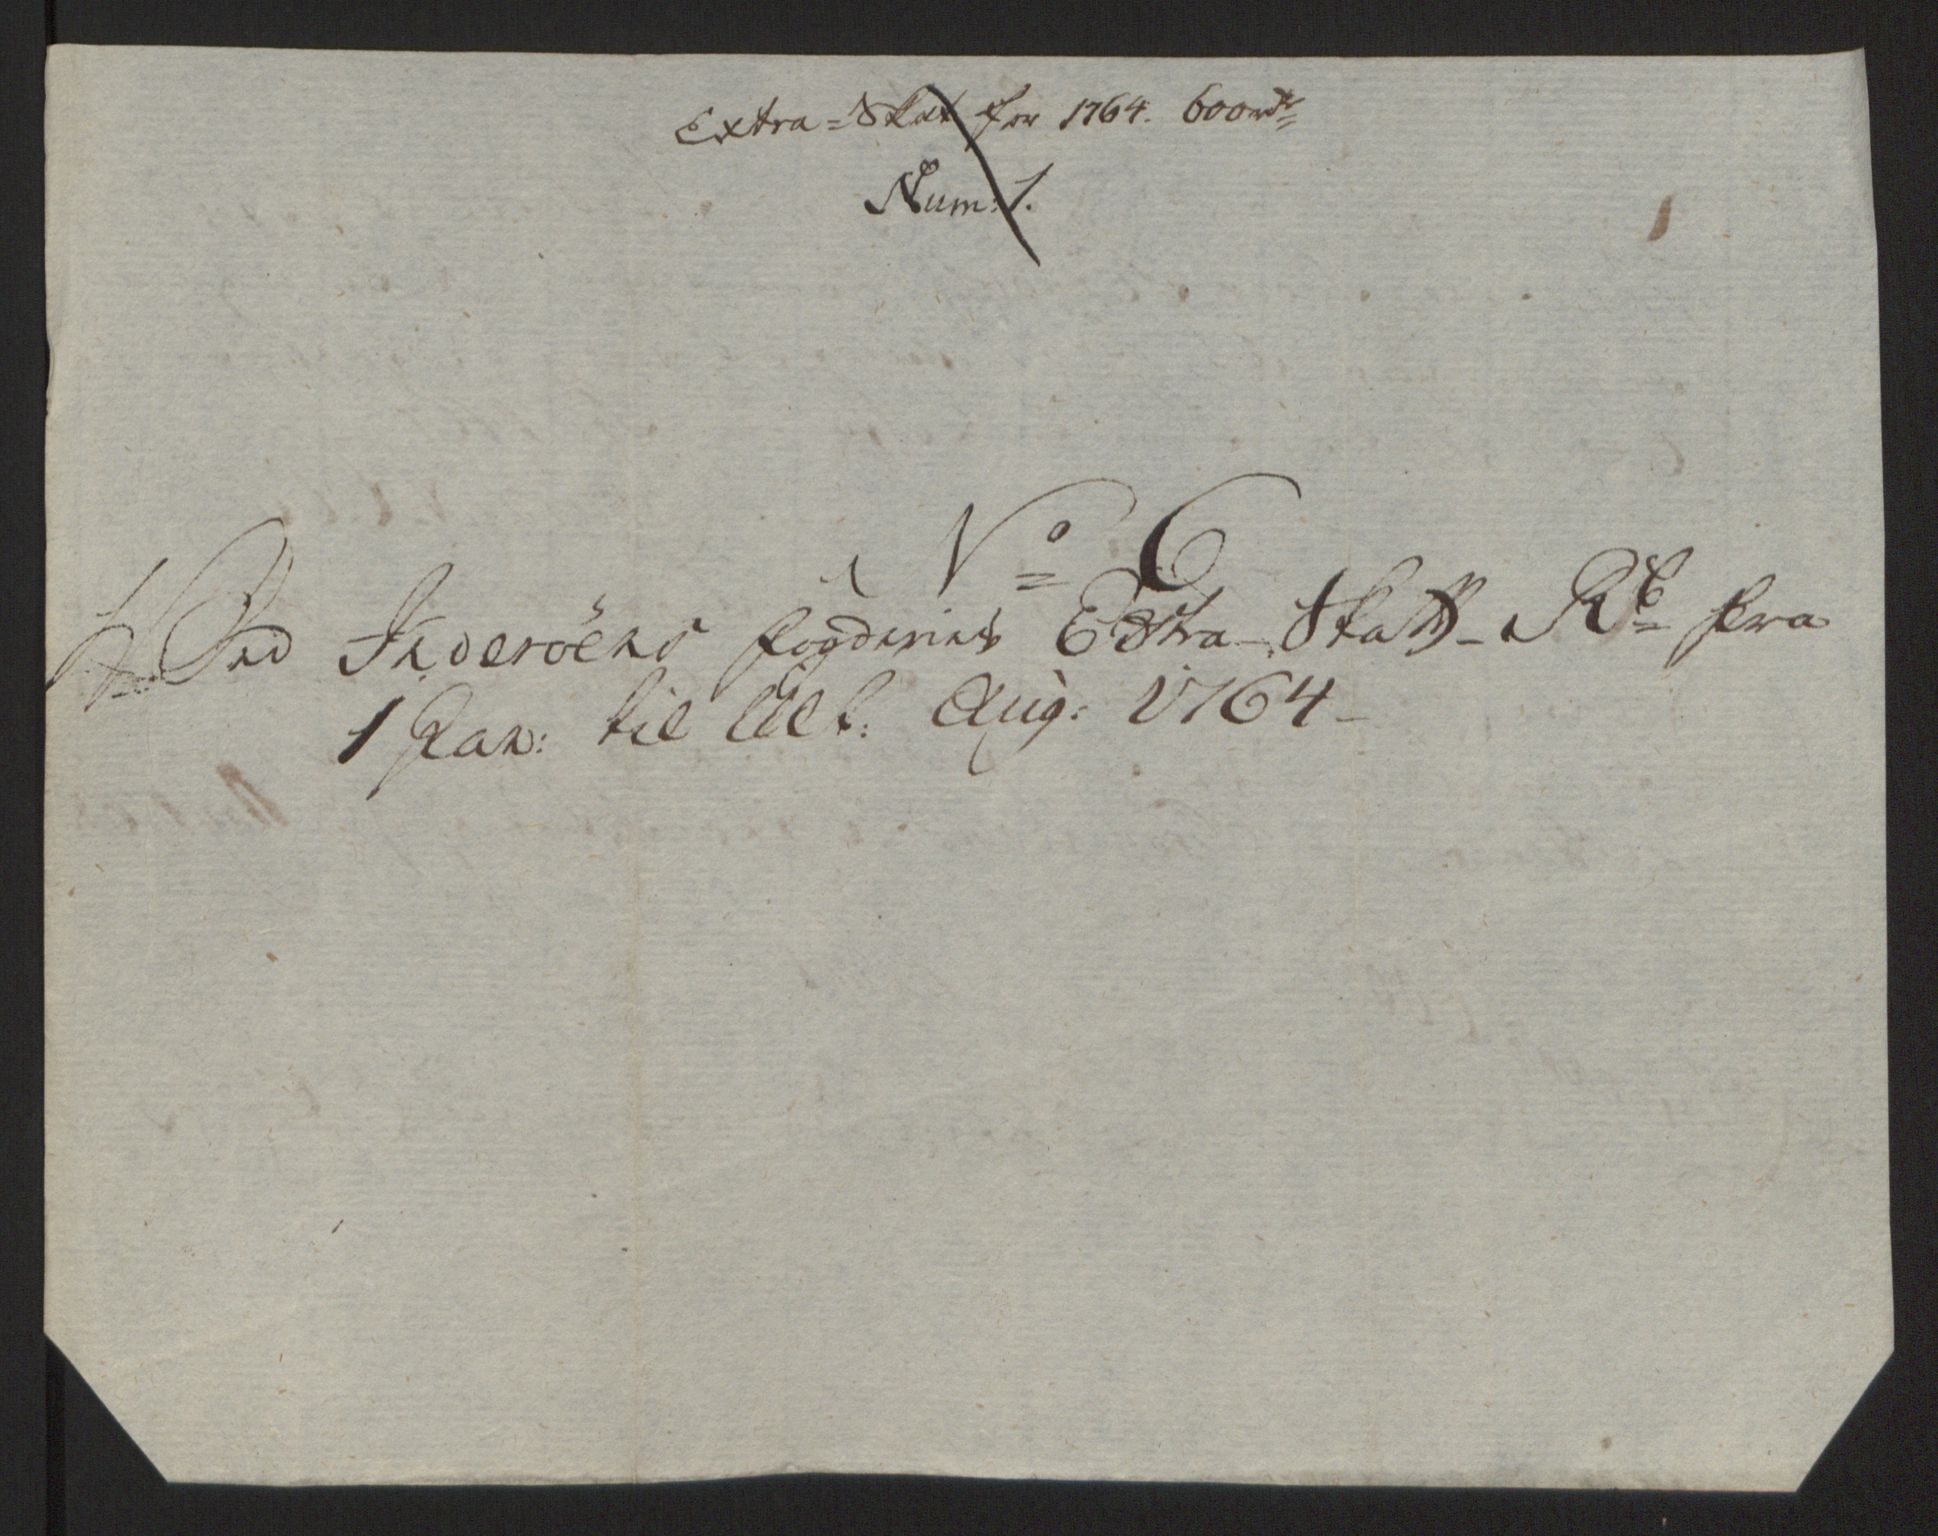 Extra-Skat for 1764. 600
Num: 1.
No 6
Ved Inderöens fogderies Extra-Skatt-R fra
1 Jan: til Ult: Aug: 1764